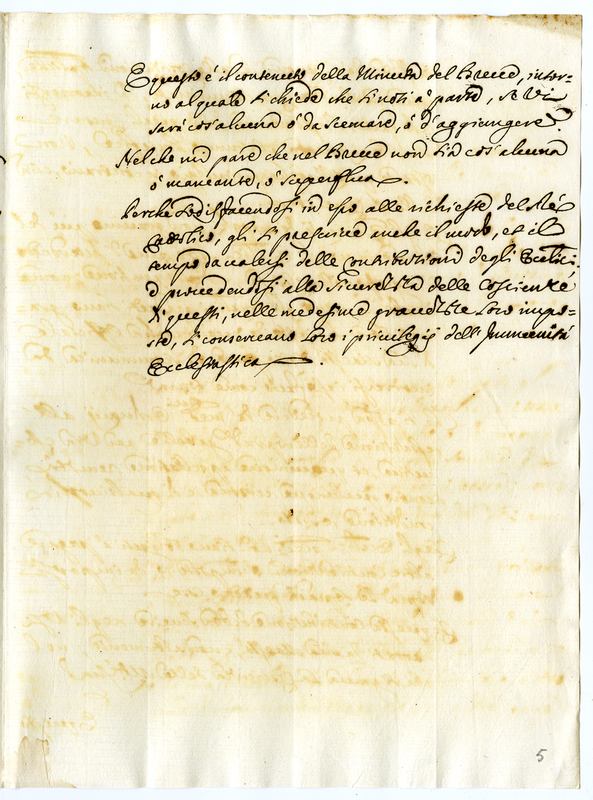 E questo é il contenuto della Minuta del Breve, intor-
no al quale si chiede che si noti a' parte, se vi
sarà cos'alcuna ó da scemare, ó d'aggiungere.
Nel che mi pare che nel Breve non sia cos'alcuna
ó mancante, ó superflua.
Perche sodisfacendosi in esso alle richieste del Ré
Cattolico, gli si prescrive anche il modo, et il
tempo da valersi delle contributioni degli Eccl.ci
é provedendosi alla sicurezza delle Coscienze
di questi, nelle medesime gravezze loro impo-
ste, si conservano loro i privilegij dell'Immunità
Ecclesiastica.
5